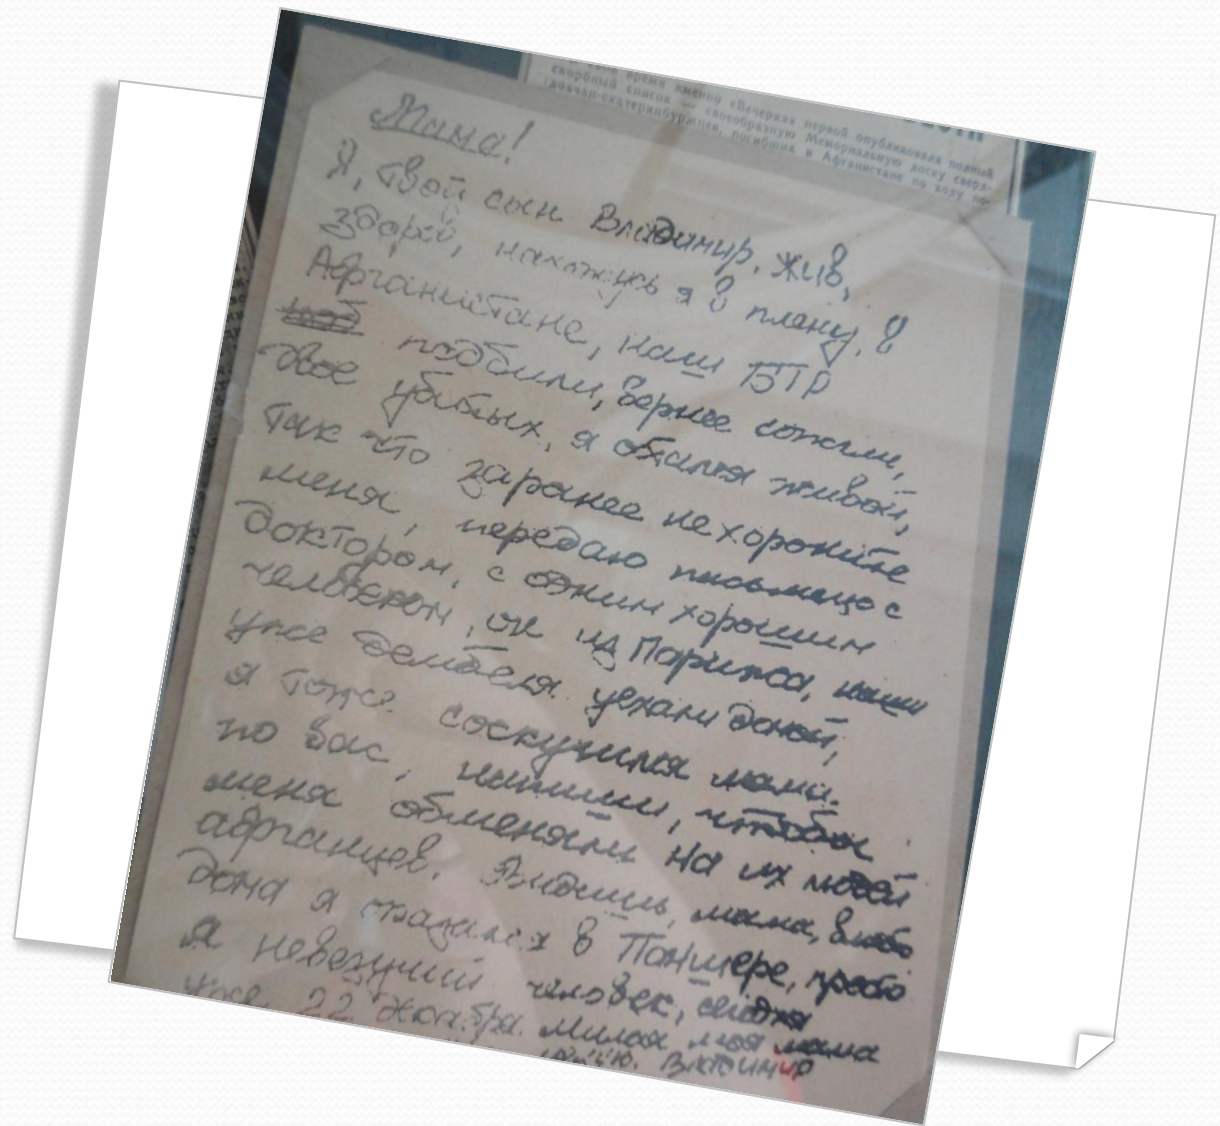 свое время именно «Вечерка» первой опубликовала полный
скорбный список — своеобразную Мемориальную доску сверд-
ловчан-екатеринбуржцев, погибших в Афганистане по ходу
Мама!
Я, твой сын Владимир. жив,
здоров, нахожусь я в плену. в
Афганистане, наш БТР
подбили, вернее сожгли,
двое убитых, я остался живой,
так что заранее не хороните
меня, передаю письмецо с
доктором, с одним хорошим
человеком, он из Парижа, наши
уже дембеля уехали домой,
я тоже соскучился мама.
по вас, напиши, чтобы
меня обменяли на их людей
афганцев. Видишь, мама,
дома я оказался в Паншере, просто
я невезучий человек, сегодня
уже 22 декабря. Милая моя мама
Владимир